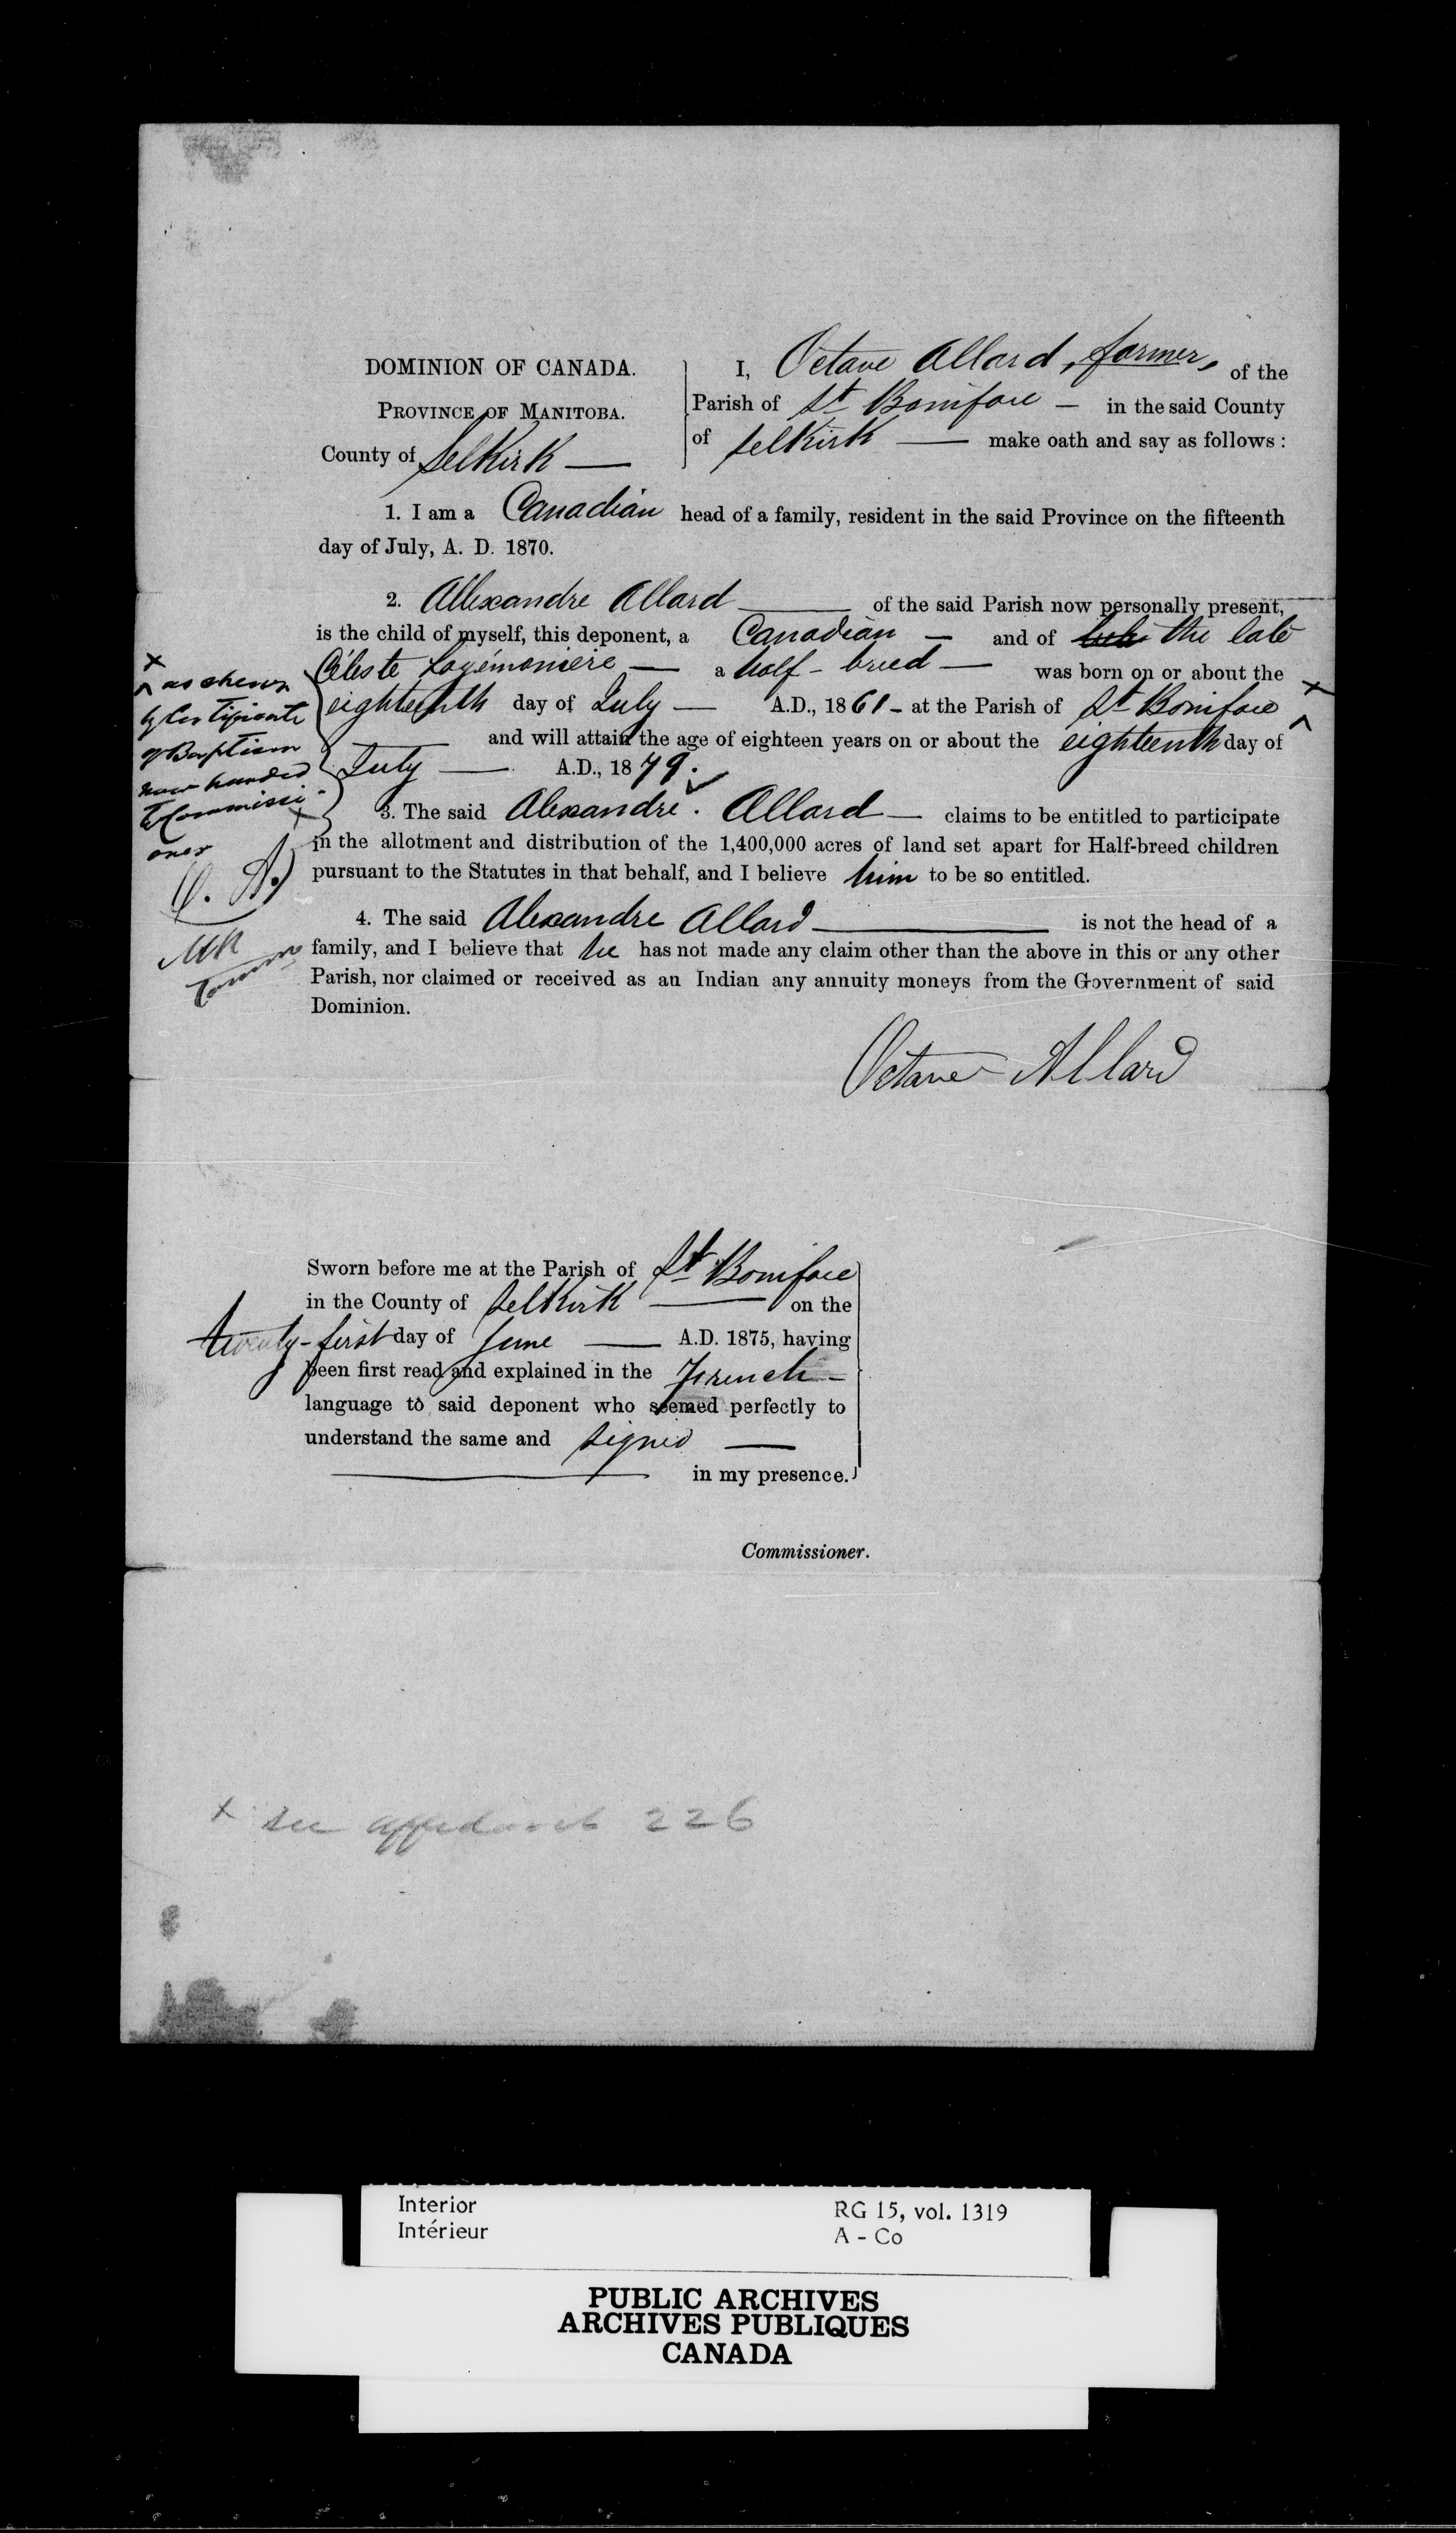 DOMINION OF CANADA.
PROVINCE OF MANITOBA.
County of Selkirk —
I, Octave Allard, farmer, of the
Parish of St Boniface — in the said County
of Selkirk — make oath and say as follows :
1. I am a Canadian head of a family, resident in the said Province on the fifteenth
day of July, A. D. 1870.
2. Allexandre Allard — of the said Parish now personally present,
is the child of myself, this deponent, a Canadian — and of the late
Céleste Lagémonière — a half-breed — was born on or about the
eighteenth day of July — A.D., 1861 - at the Parish of St Boniface x
— and will attain the age of eighteen years on or about the eighteenth day of
July — A.D., 1879.
3. The said Alexandre Allard — claims to be entitled to participate
in the allotment and distribution of the 1,400,000 acres of land set apart for Half-breed children
pursuant to the Statutes in that behalf, and I believe him to be so entitled.
4. The said Alexandre Allard — is not the head of a
family, and I believe that he has not made any claim other than the above in this or any other
Parish, nor claimed or received as an Indian any annuity moneys from the Government of said
Dominion.
x
as shewn
by Certificate
of Baptism
now handed
to Commissi-
oner x
(O. A.)
MR
Octave Allard
Sworn before me at the Parish of St Boniface
in the County of Selkirk — on the
twenty-first day of June — A.D. 1875, having
been first read and explained in the French —
language to said deponent who seemed perfectly to
understand the same and signed —
— in my presence.
Commissioner.
x see affidavit 226
Interior
Intérieur
RG 15, vol. 1319
A - Co
PUBLIC ARCHIVES
ARCHIVES PUBLIQUES
CANADA